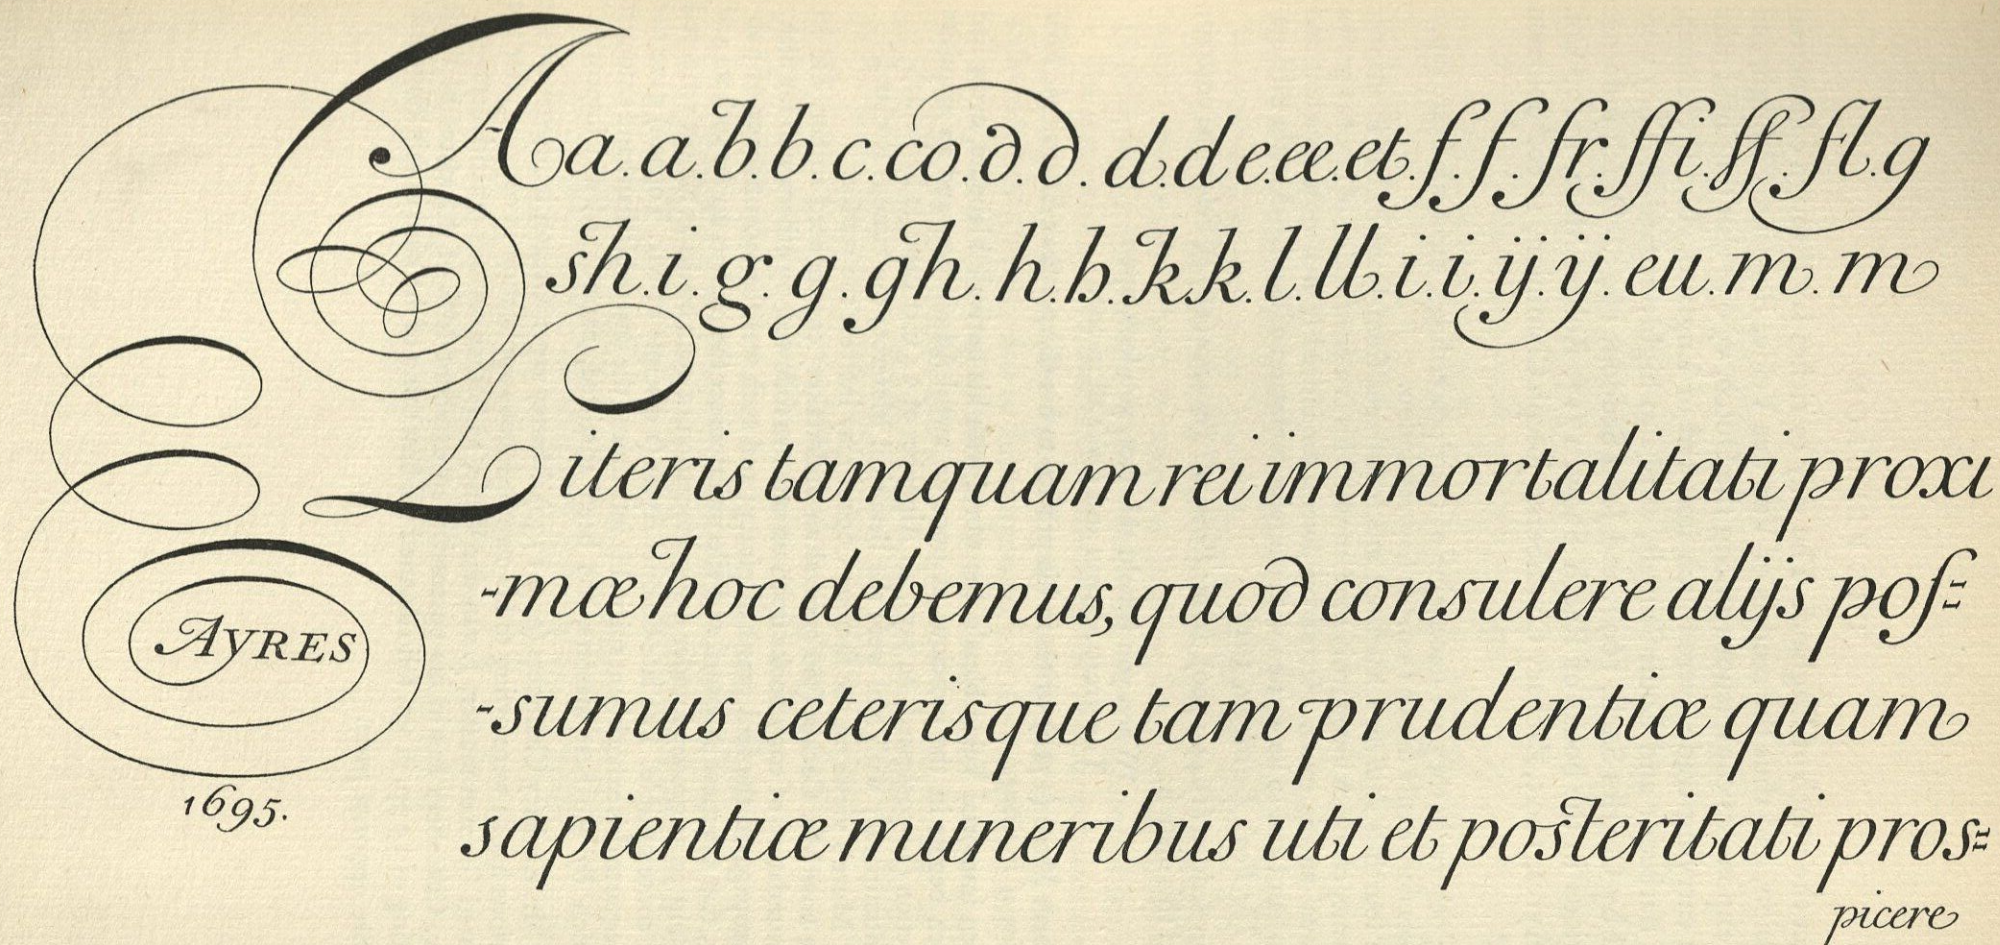 Aa.a.b.b.c.co.d.d.d.d e.ee.et.f.f.fr.ffi.ff.fl.g
sh.i.g.g.gh.h.b.k k.l.ll.i.i.ij.ij.eu.m.m
Literis tamquam rei immortalitati proxi
-mæ hoc debemus, quod consulere alijs poſ=
-sumus ceterisque tam prudentiæ quam
sapientiæ muneribus uti et posteritati pros=
picere
AYRES
1695.